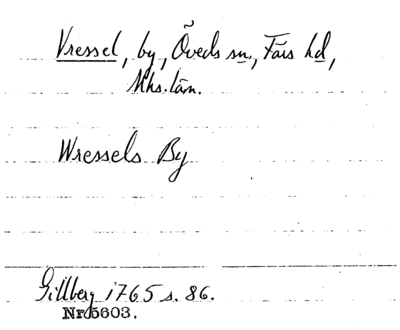 Vressel, by, Öveds sn, Färs hd,
Mhs. län.
Wressels By
Gillberg 1765 s. 86.
Nr 5603.